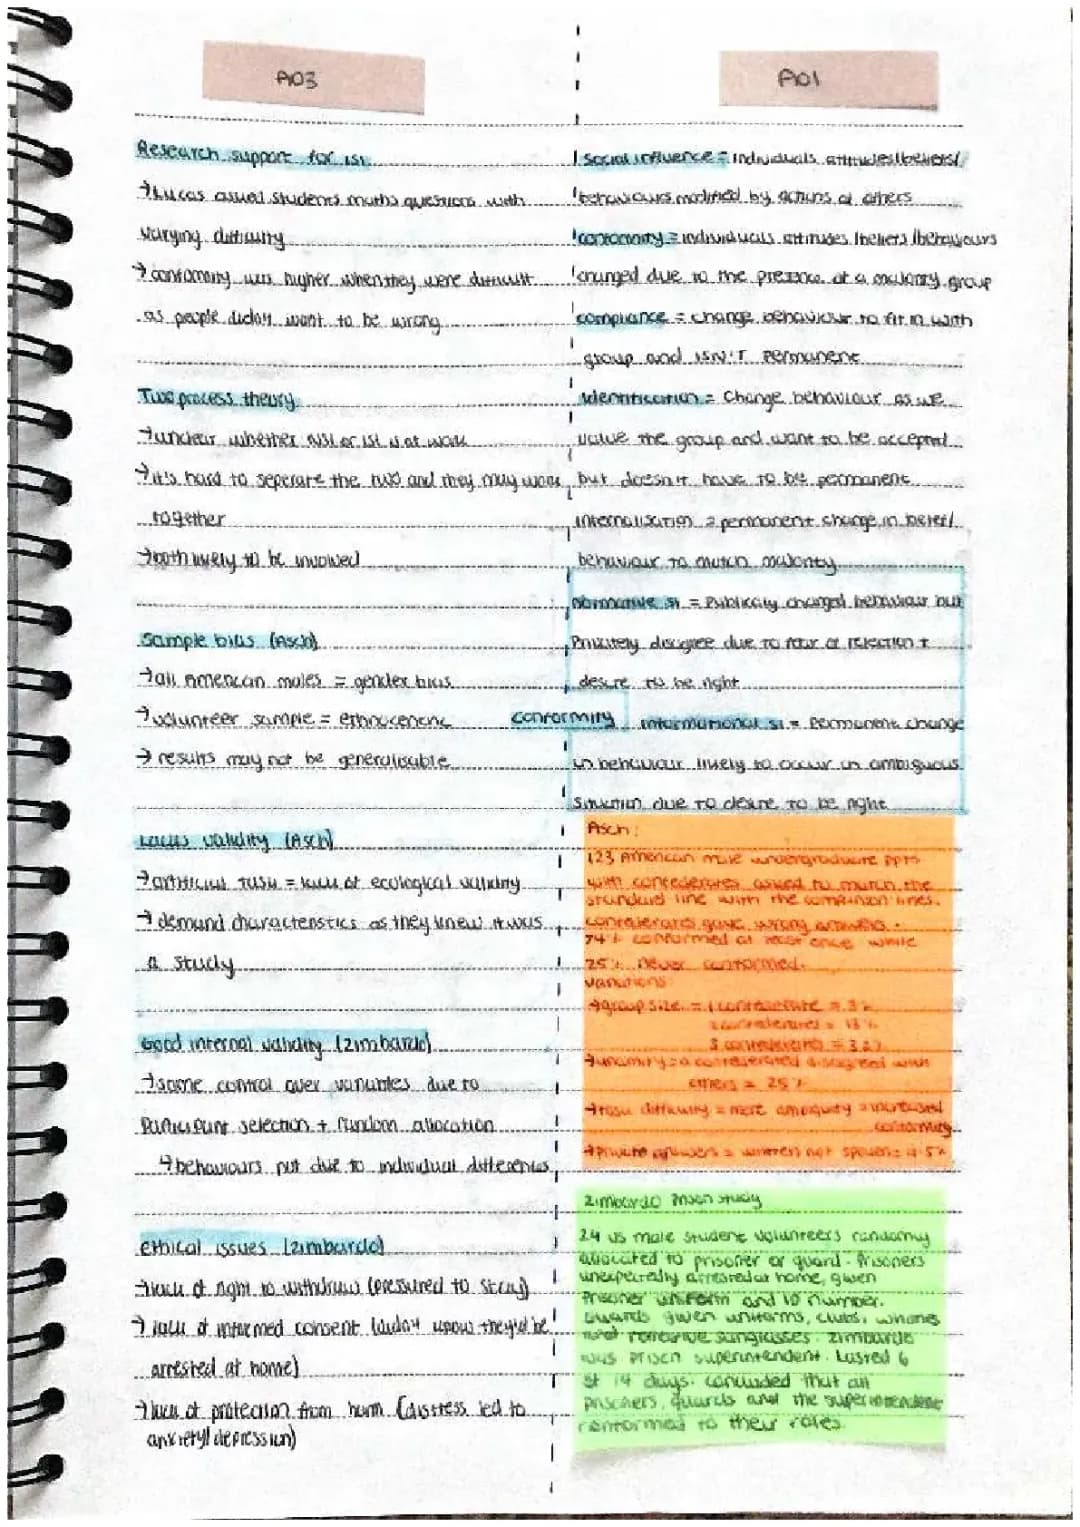 AO3
Research support for ISI
→Lucas asked students maths questions with
varying difficulty
→conformity was higher when they were difficult
as people didn't want to be wrong
Two process theory
→unclear whether NSI or ISI is at work
→it's hard to seperate the two and they may work
together
→both likely to be involved
Sample bias (Asch)
→all American males = gender bias
→volunteer sample = ethnocentric
→results may not be generalisable
Lacks validity (Asch)
→artificial task = lack of ecological validity
→demand characteristics as they knew it was
a study
Good internal validity (Zimbardo)
→some control over variables due to
participant selection + random allocation
↳behaviours not due to individual differences
ethical issues (Zimbardo)
→lack of right to withdraw (pressured to stay)
→lack of informed consent (didn't know they'd be
arrested at home)
→lack of protection from harm (distress led to
anxiety/depression)
AO1
Social influence = individuals attitudes/beliefs/
behaviours modified by actions of others
conformity = individuals attitudes/beliefs/behaviours
changed due to the presence of a majority group
compliance = change behaviour to fit in with
group and ISN'T permanent
identification = Change behaviour as we
value the group and want to be accepted
but doesn't have to be permanent
internalisation = permanent change in belief/
behaviour to match majority
normative SI = Publically changed behaviour but
Privately disagree due to fear of rejection +
desire to be right
conformity
informational SI = Permanent change
in behaviour likely to occur in ambiguous
situation due to desire to be right
Asch:
123 American male undergraduate ppts
with confederates asked to match the
standard line with the comparison lines.
confederates gave wrong answers.
74% conformed at least once while
25% never conformed.
variations:
→group size = 1 confederate = 3%
2 confederates = 13%
3 confederates =
→unanimity = a confederated disagreed with
others = 25%
→task difficulty = more ambiguity = increased
conformity
→private answers = written not spoken =
Zimbardo Prison Study
24 US male student volunteers randomly
allocated to prisoner or guard. Prisoners
unexpectedly arrested at home, given
prisoner uniform and ID number.
Guards given uniforms, clubs, whistles
and reflective sunglasses. Zimbardo
was prison superintendent. Lasted 6
of 14 days. Concluded that all
prisoners, guards and the superintendent
conformed to their roles.